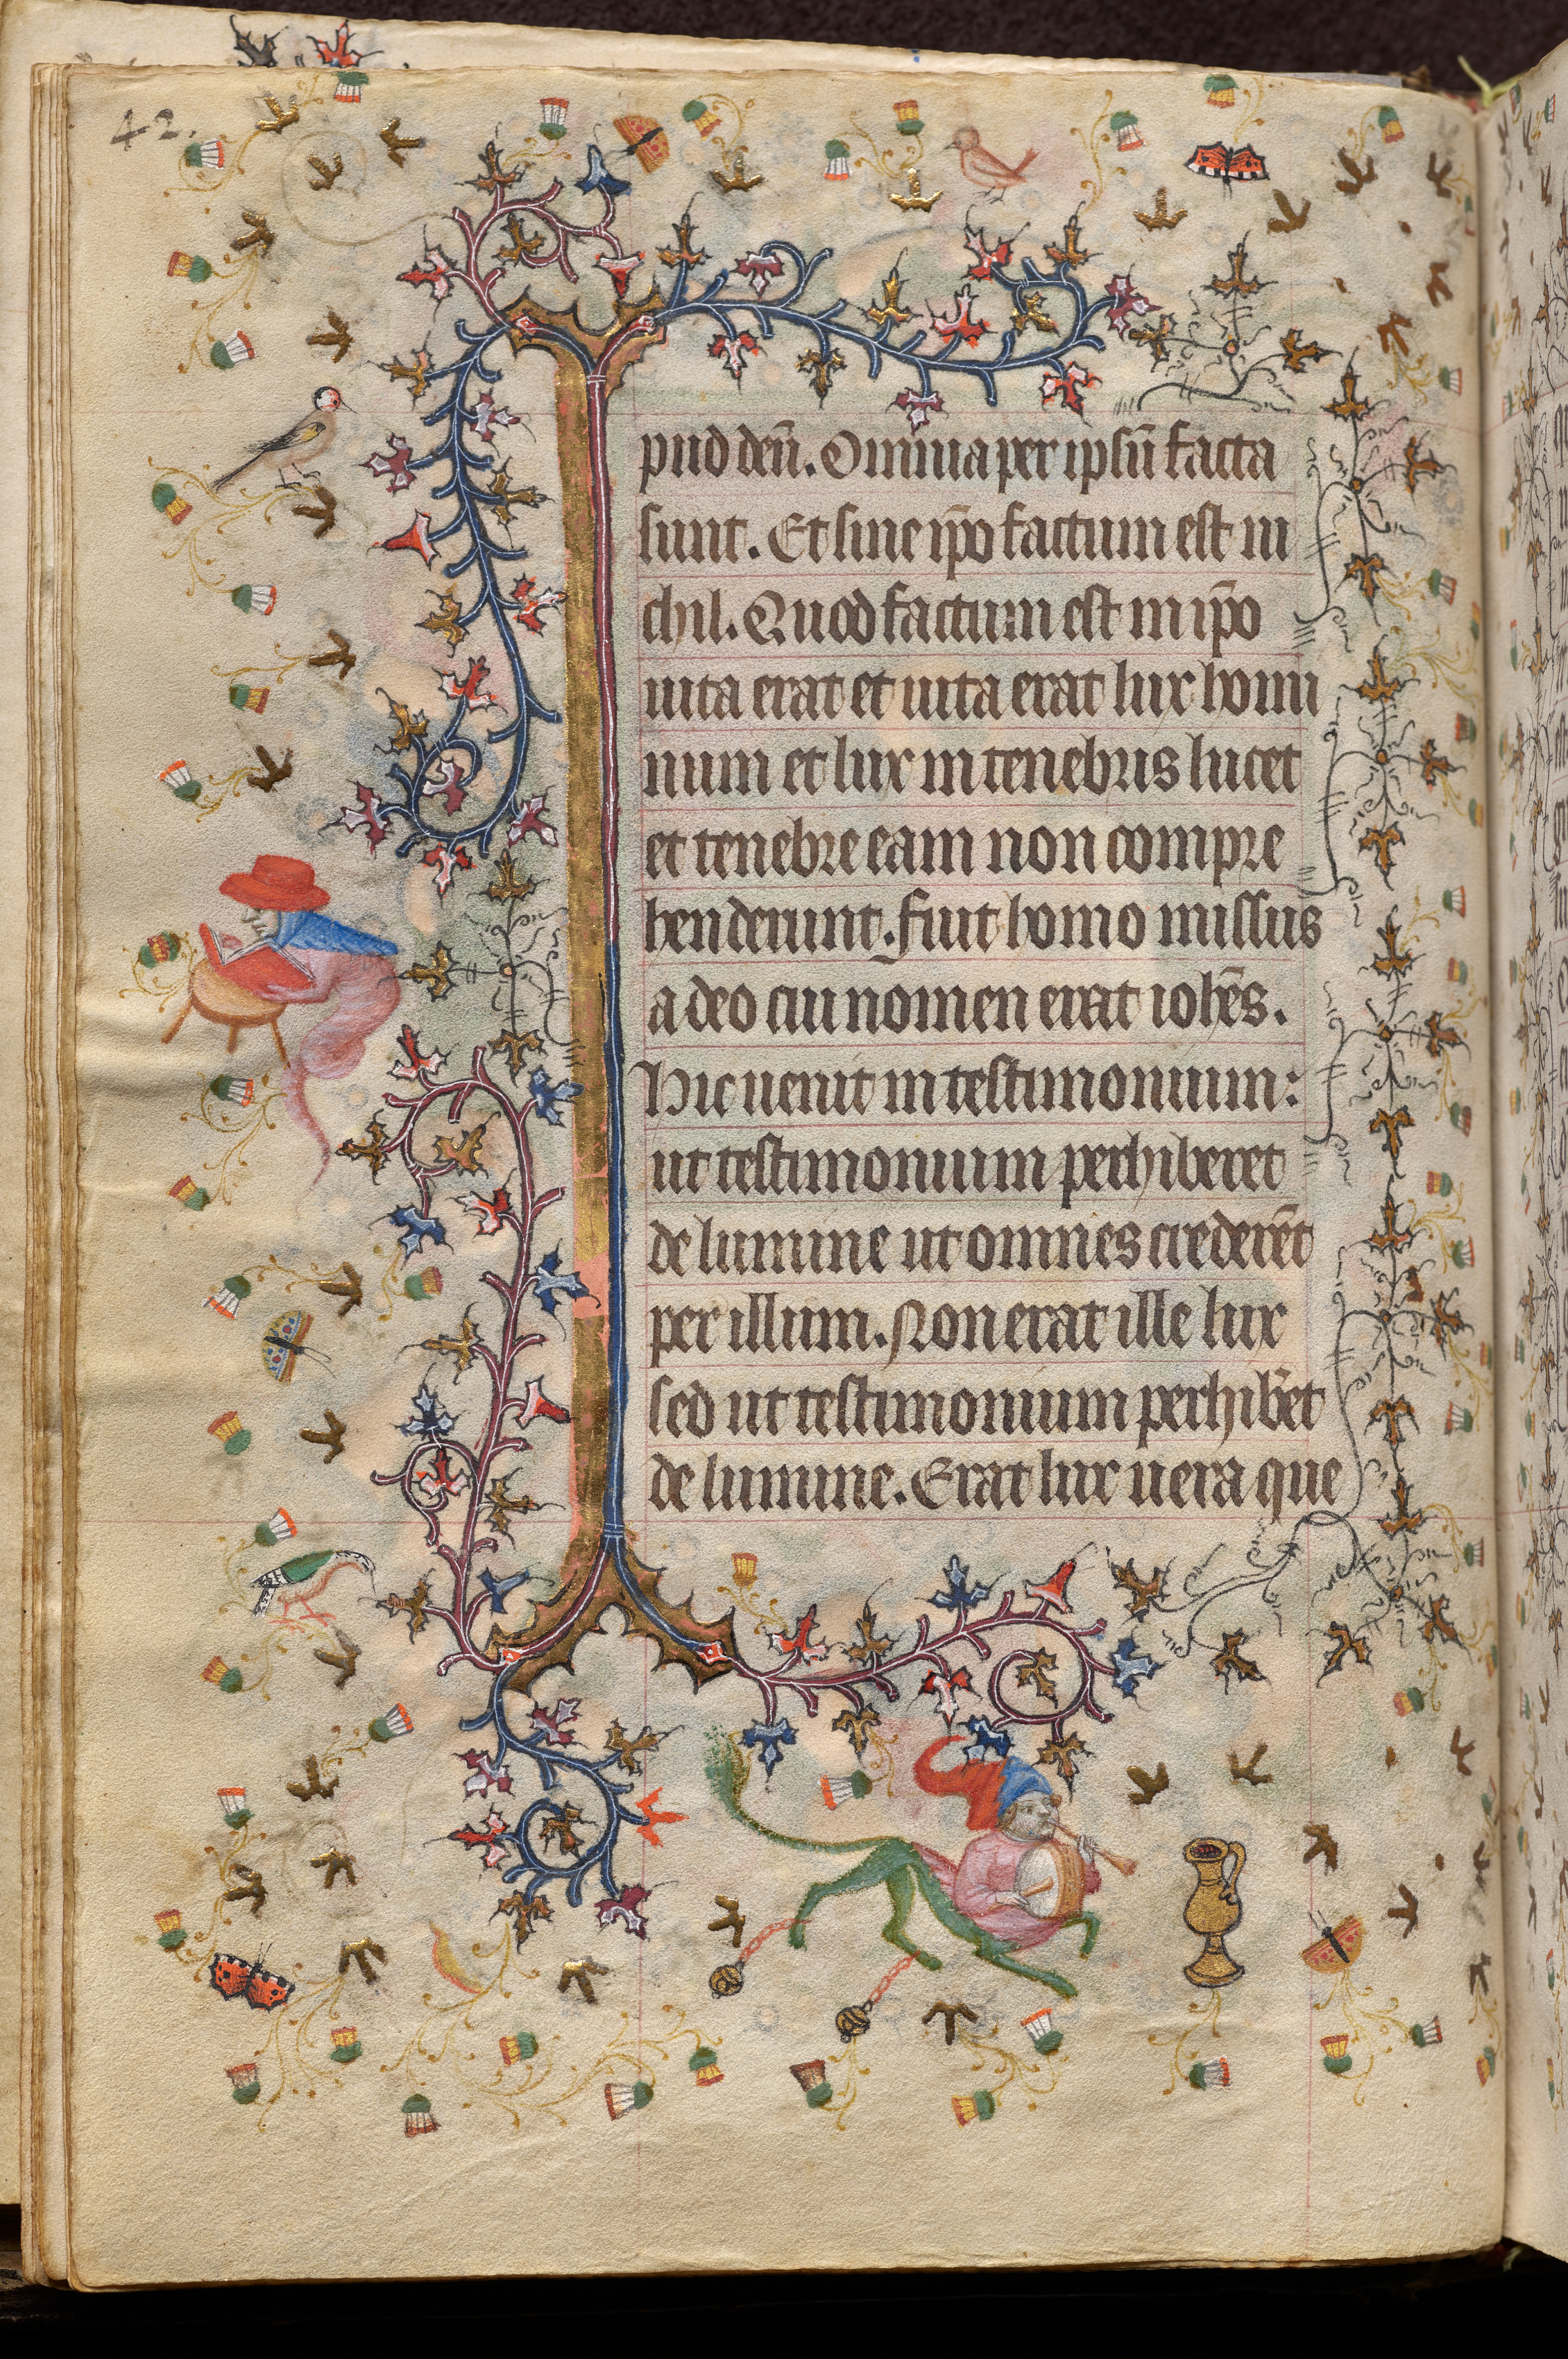 42.
pud deū. Omnia per ipsū facta
sunt. Et sine ip̄o factum est ni
chil. Quod factum est in ip̄o
uita erat et uita erat lux homi
num et lux in tenebris lucet
et tenebre eam non compre
henderunt. fuit homo missus
a deo cui nomen erat ioh̄es.
Hic uenit in testimonium:
ut testimonium perhiberet
de lumine ut omnes crederēt
per illum. Non erat ille lux
sed ut testimonium perhib̄et
de lumine. Erat lux uera que